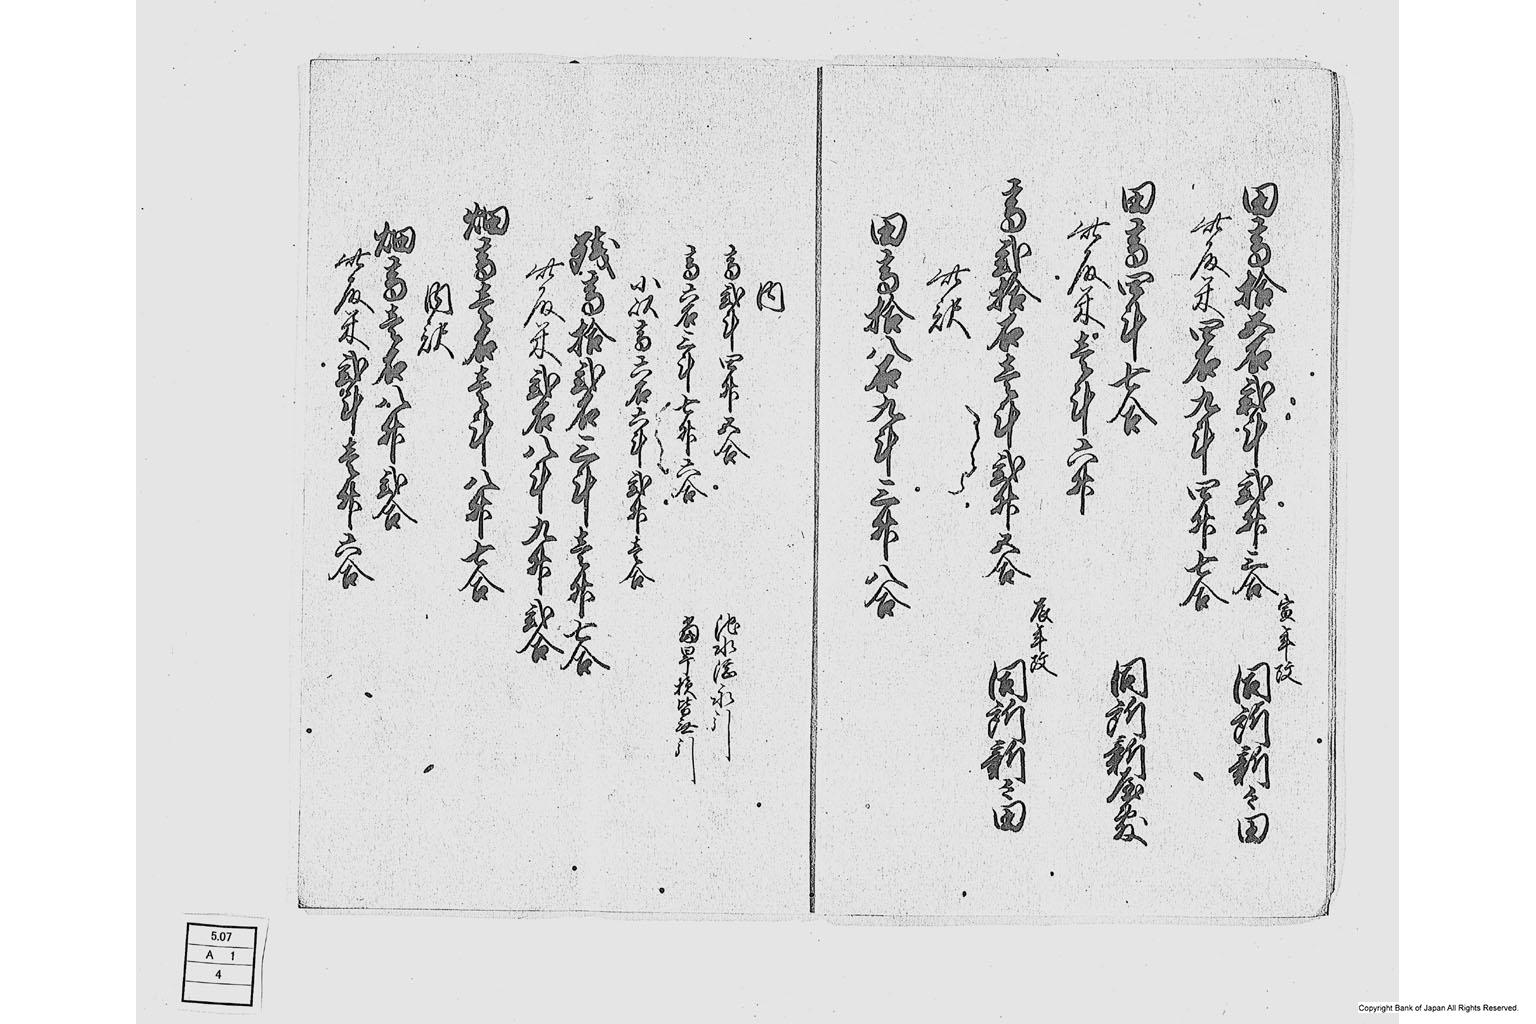 田高拾五石弐斗弐升三合
寅年改
同所新々田
此取米四石九斗四升七合
田高四斗七合
同所新屋敷
此取米壱斗六升
高弐拾石壱斗弐升五合
辰年改
同所新々田
此訳
田高拾八石九斗三升八合
内
高弐斗四升五合
池水溜永引
高六石三斗七升六合
当旱損皆無引
小以高六石六斗弐升壱合
残高拾弐石三斗壱升七合
此取米弐石八斗九升弐合
畑高壱石壱斗八升七合
内訳
畑高壱石八升弐合
此取米弐斗壱升六合
5.07
A 1
4
Copyright Bank of Japan All Rights Reserved.